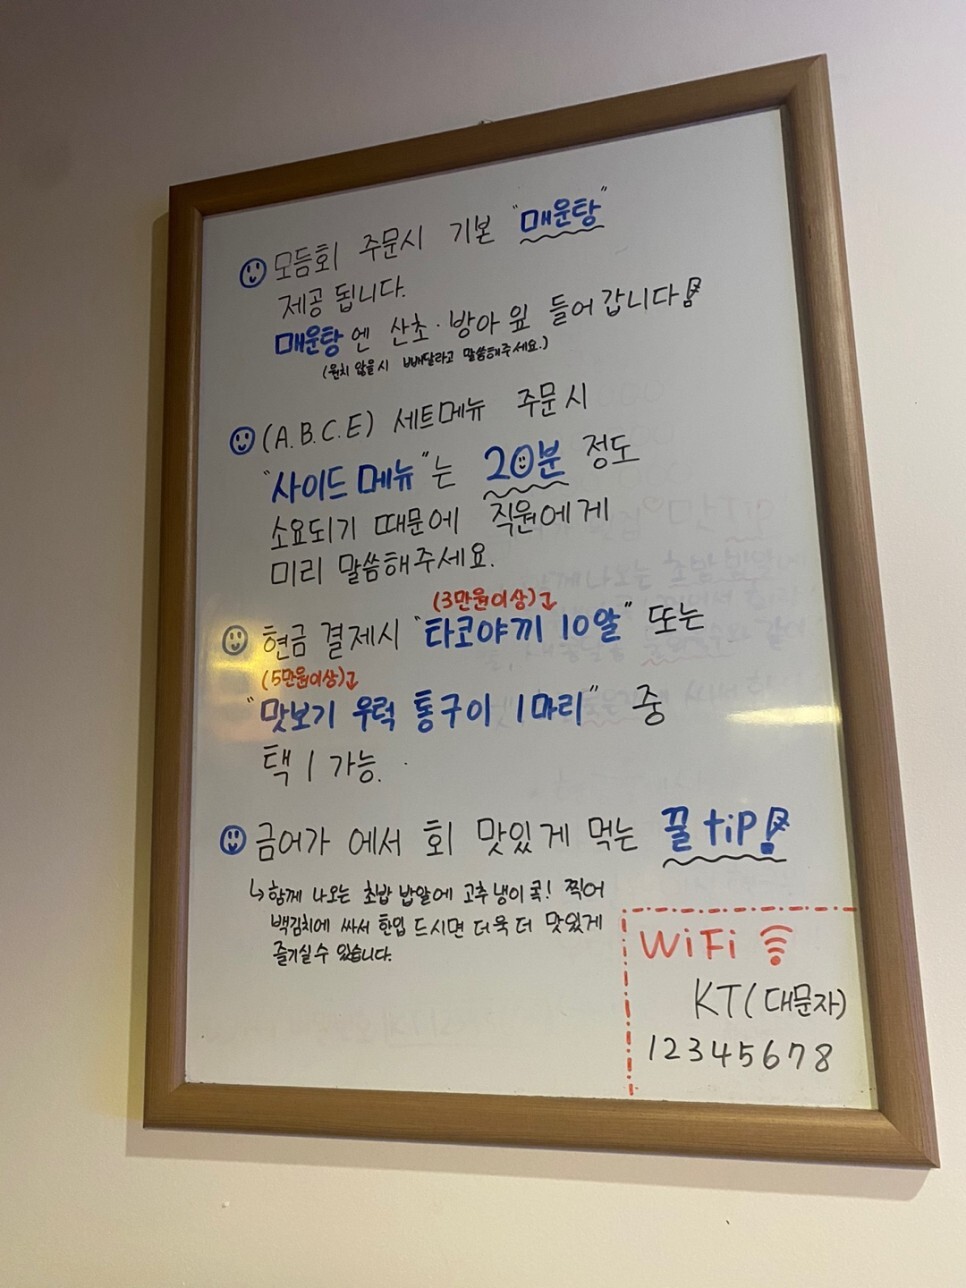 모듬회 주문시 기본 "매운탕"
제공 됩니다.
매운탕엔 산초·방아잎 들어갑니다!
(원치 않을시 빼달라고 말씀해주세요.)
(A.B.C.E) 세트메뉴 주문시
"사이드 메뉴"는 20분 정도
소요되기 때문에 직원에게
미리 말씀해주세요.
(3만원이상)
현금 결제시 "타코야끼 10알" 또는
(5만원이상)
"맛보기 우럭 통구이 1마리" 중
택 1 가능.
금어가 에서 회 맛있게 먹는 꿀tip!
↳ 함께 나오는 초밥 밥알에 고추냉이 콕! 찍어
백김치에 싸서 한입 드시면 더욱 더 맛있게
즐기실 수 있습니다.
WiFi
KT(대문자)
12345678